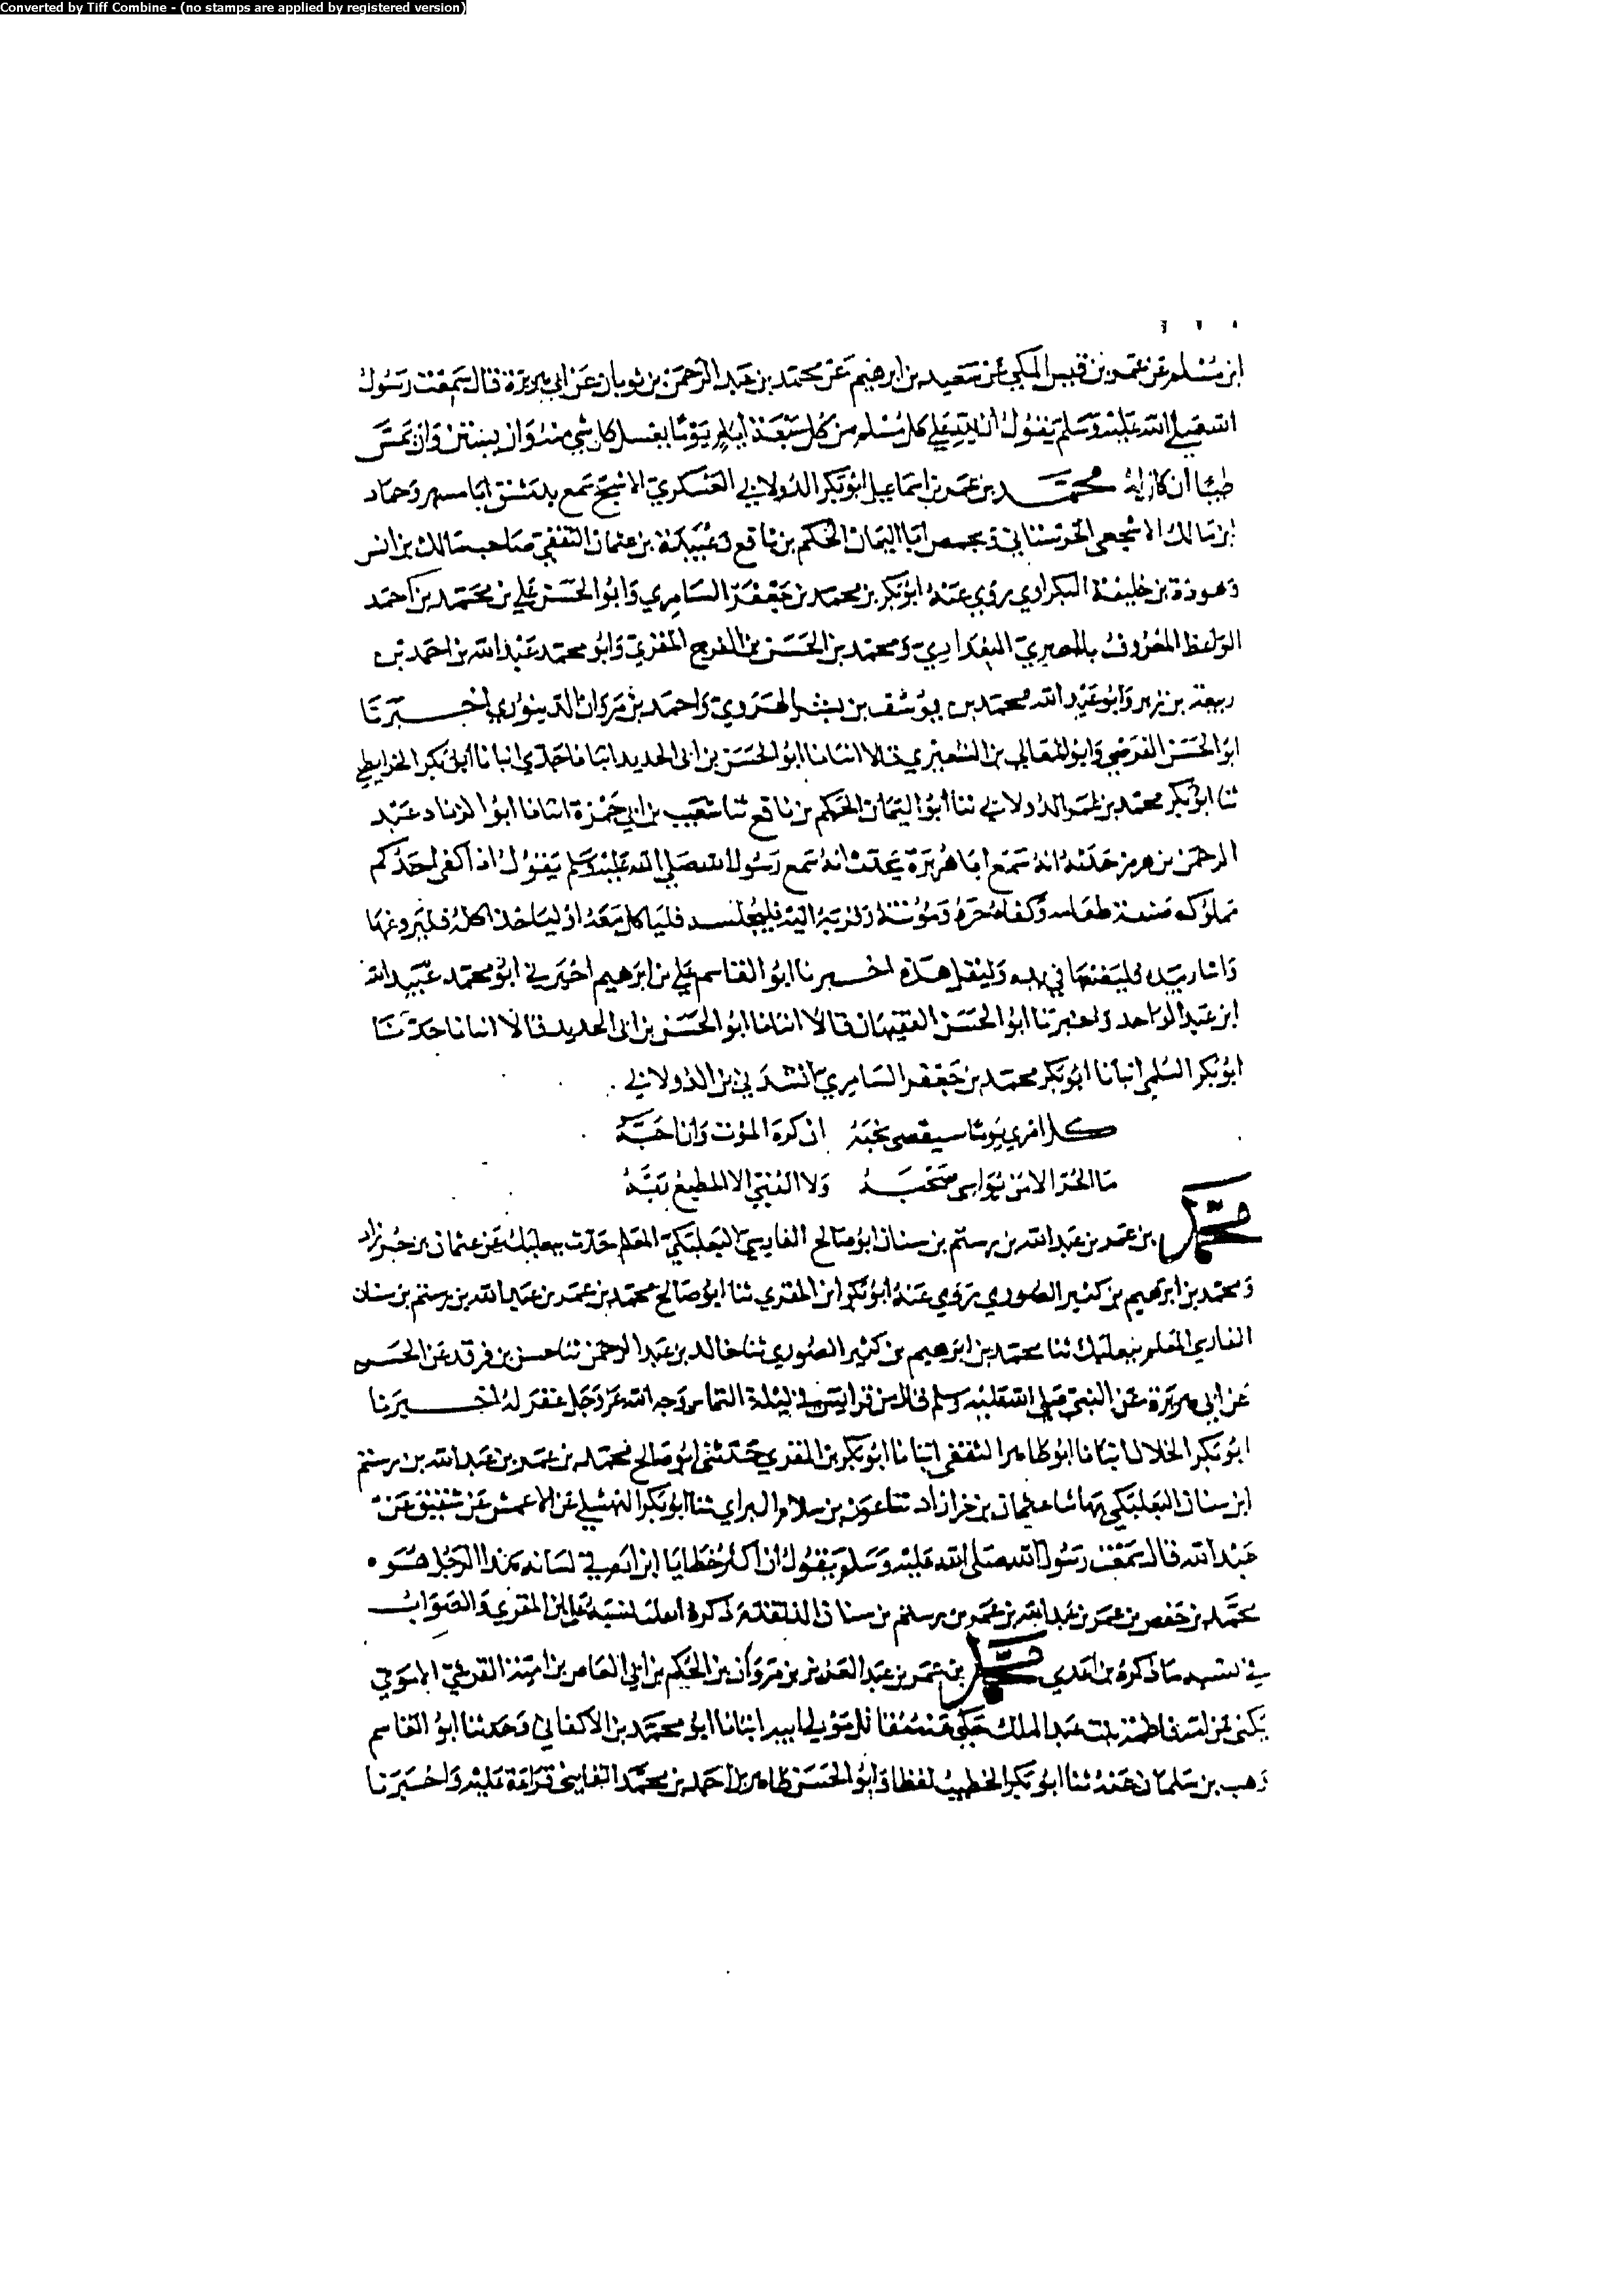 Converted by Tiff Combine - (no stamps are applied by registered version)
ابن مسلم عن عمر بن قيس المكي عن سعيد بن ابرهيم عن محمد بن عبد الرحمن بن ثوبان عن ابي هريرة قال سمعت رسول
الله صلى الله عليه وسلم يقول ان لله على كل مسلم من كل سبعة ايام يوما يغسل كل شي منه وان يستن وان يمس
طيبا ان كان له محمد بن عمر بن اسماعيل ابو بكر الدولابي العسكري الاشج سمع بدمشق ابا مسهر وحماد
ابن مالك الاشجعي الحرستاني وبحمص ابا اليمان الحكم بن نافع وعتيبة بن عثمان الثقفي صاحب مالك بن انس
وهوذة بن خليفة البكراوي روى عنه ابو بكر بن محمد بن جعفر السامري وابو الحسن علي بن محمد بن احمد
الواعظ المعروف بالمصري البغدادي ومحمد بن الحسن بن الفرج المقري وابو محمد عبد الله بن احمد بن
ربيعة بن زبر وابو عبد الله محمد بن يوسف بن بشر الهروي واحمد بن مروان الدينوري اخبرنا
ابو الحسن الفرضي وابو المعالي بن الشعيري قالا انبانا ابو الحسن بن ابي الحديد انبانا جدي انبانا ابو بكر الخرايطي
ثنا ابو بكر محمد بن عمر الدولابي ثنا ابو اليمان الحكم بن نافع ثنا شعيب بن ابي حمزة انبانا ابو الزناد عبد
الرحمن بن هرمز حدثه انه سمع ابا هريرة يحدث انه سمع رسول الله صلى الله عليه وسلم يقول اذا كفى احدكم
مملوكه صنعة طعامه وكفاه حره ومؤنته وقربه اليه فليجلسه فلياكل معه او لياخذ اكلة فليروغها
واشار بيده وليضعها في يده وليقل هذه اخبرنا ابو القاسم علي بن ابرهيم اخبرني ابو محمد عبيد الله
ابن عبد الواحد واخبرنا ابو الحسن الفقيهان قالا انبانا ابو الحسن بن ابي الحديد قالا انبانا حدثنا
ابو بكر السلمي انبانا ابو بكر محمد بن جعفر السامري انشدني بن الدولابي
كل امري يوما سيقضي نحبه ان كره الموت وان احبه
ما الحر الا من يواسي صحبه ولا الفتى الا المطيع ربه
محمد بن عمر بن عبد الله بن رستم بن سنان ابو صالح الفارسي البعلبكي المعلم حدث ببعلبك عن عثمان بن خرزاد
ومحمد بن ابرهيم بن كثير الصوري روى عنه ابو بكر ابن المقري ثنا ابو صالح محمد بن عمر بن عبد الله بن رستم بن سنان
الفارسي المعلم ببعلبك ثنا محمد بن ابرهيم بن كثير الصوري ثنا خالد بن عبد الرحمن ثنا حسن بن فرقد عن الحسن
عن ابي هريرة عن النبي صلى الله عليه وسلم قال من قرا يس في ليلة التماس وجه الله عز وجل غفر له اخبرنا
ابو بكر الخلال انبانا ابو طاهر الثقفي انبانا ابو بكر بن المقري حدثني ابو صالح محمد بن عمر بن عبد الله بن رستم
ابن سنان البعلبكي بها ثنا عثمان بن خرزاد ثنا عون بن سلام ثنا ابو بكر النهشلي عن الاعمش عن شقيق عن
عبد الله قال سمعت رسول الله صلى الله عليه وسلم يقول ان اكثر خطايا ابن ادم في لسانه هذا الرجل هو
محمد بن حفص بن عمر بن عبد الله بن عمر بن رستم بن سنان ذكره نسبه على ابن المقري والصواب
في نسبه ما ذكره بن عدي محمد بن عمر بن عبد العزيز بن مروان بن الحكم بن ابي العاص بن امية القرشي الاموي
يكنى عن فاطمة بنت عبد الملك حكى مولى ابيه انبانا ابو محمد بن الاكفاني وحدثنا ابو القاسم
وهب بن سلمان عنه ثنا ابو بكر الخطيب لفظا وابو الحسن طاهر بن احمد بن محمد القايني قراءة عليه واخبرنا